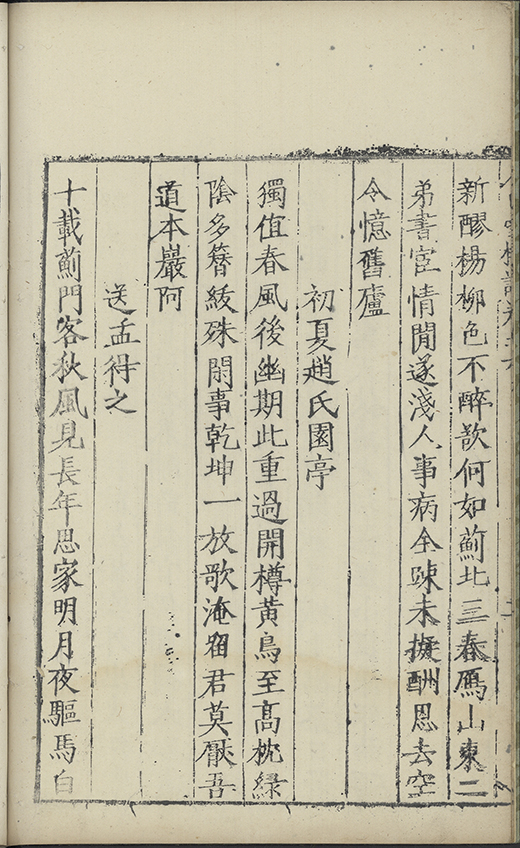 新醪楊柳色不醉歆何如薊北三春鴈山東二
弟書宦情閒遂淺人事病全踈未擬酬恩去空
令憶舊廬
初夏趙氏園亭
獨值春風後幽期此重過開樽黃鳥至高枕緑
陰多簪紱殊閑事乾坤一放歌淹留君莫厭吾
道本巖阿
送孟得之
十載薊門客秋風見長年思家明月夜驅馬白